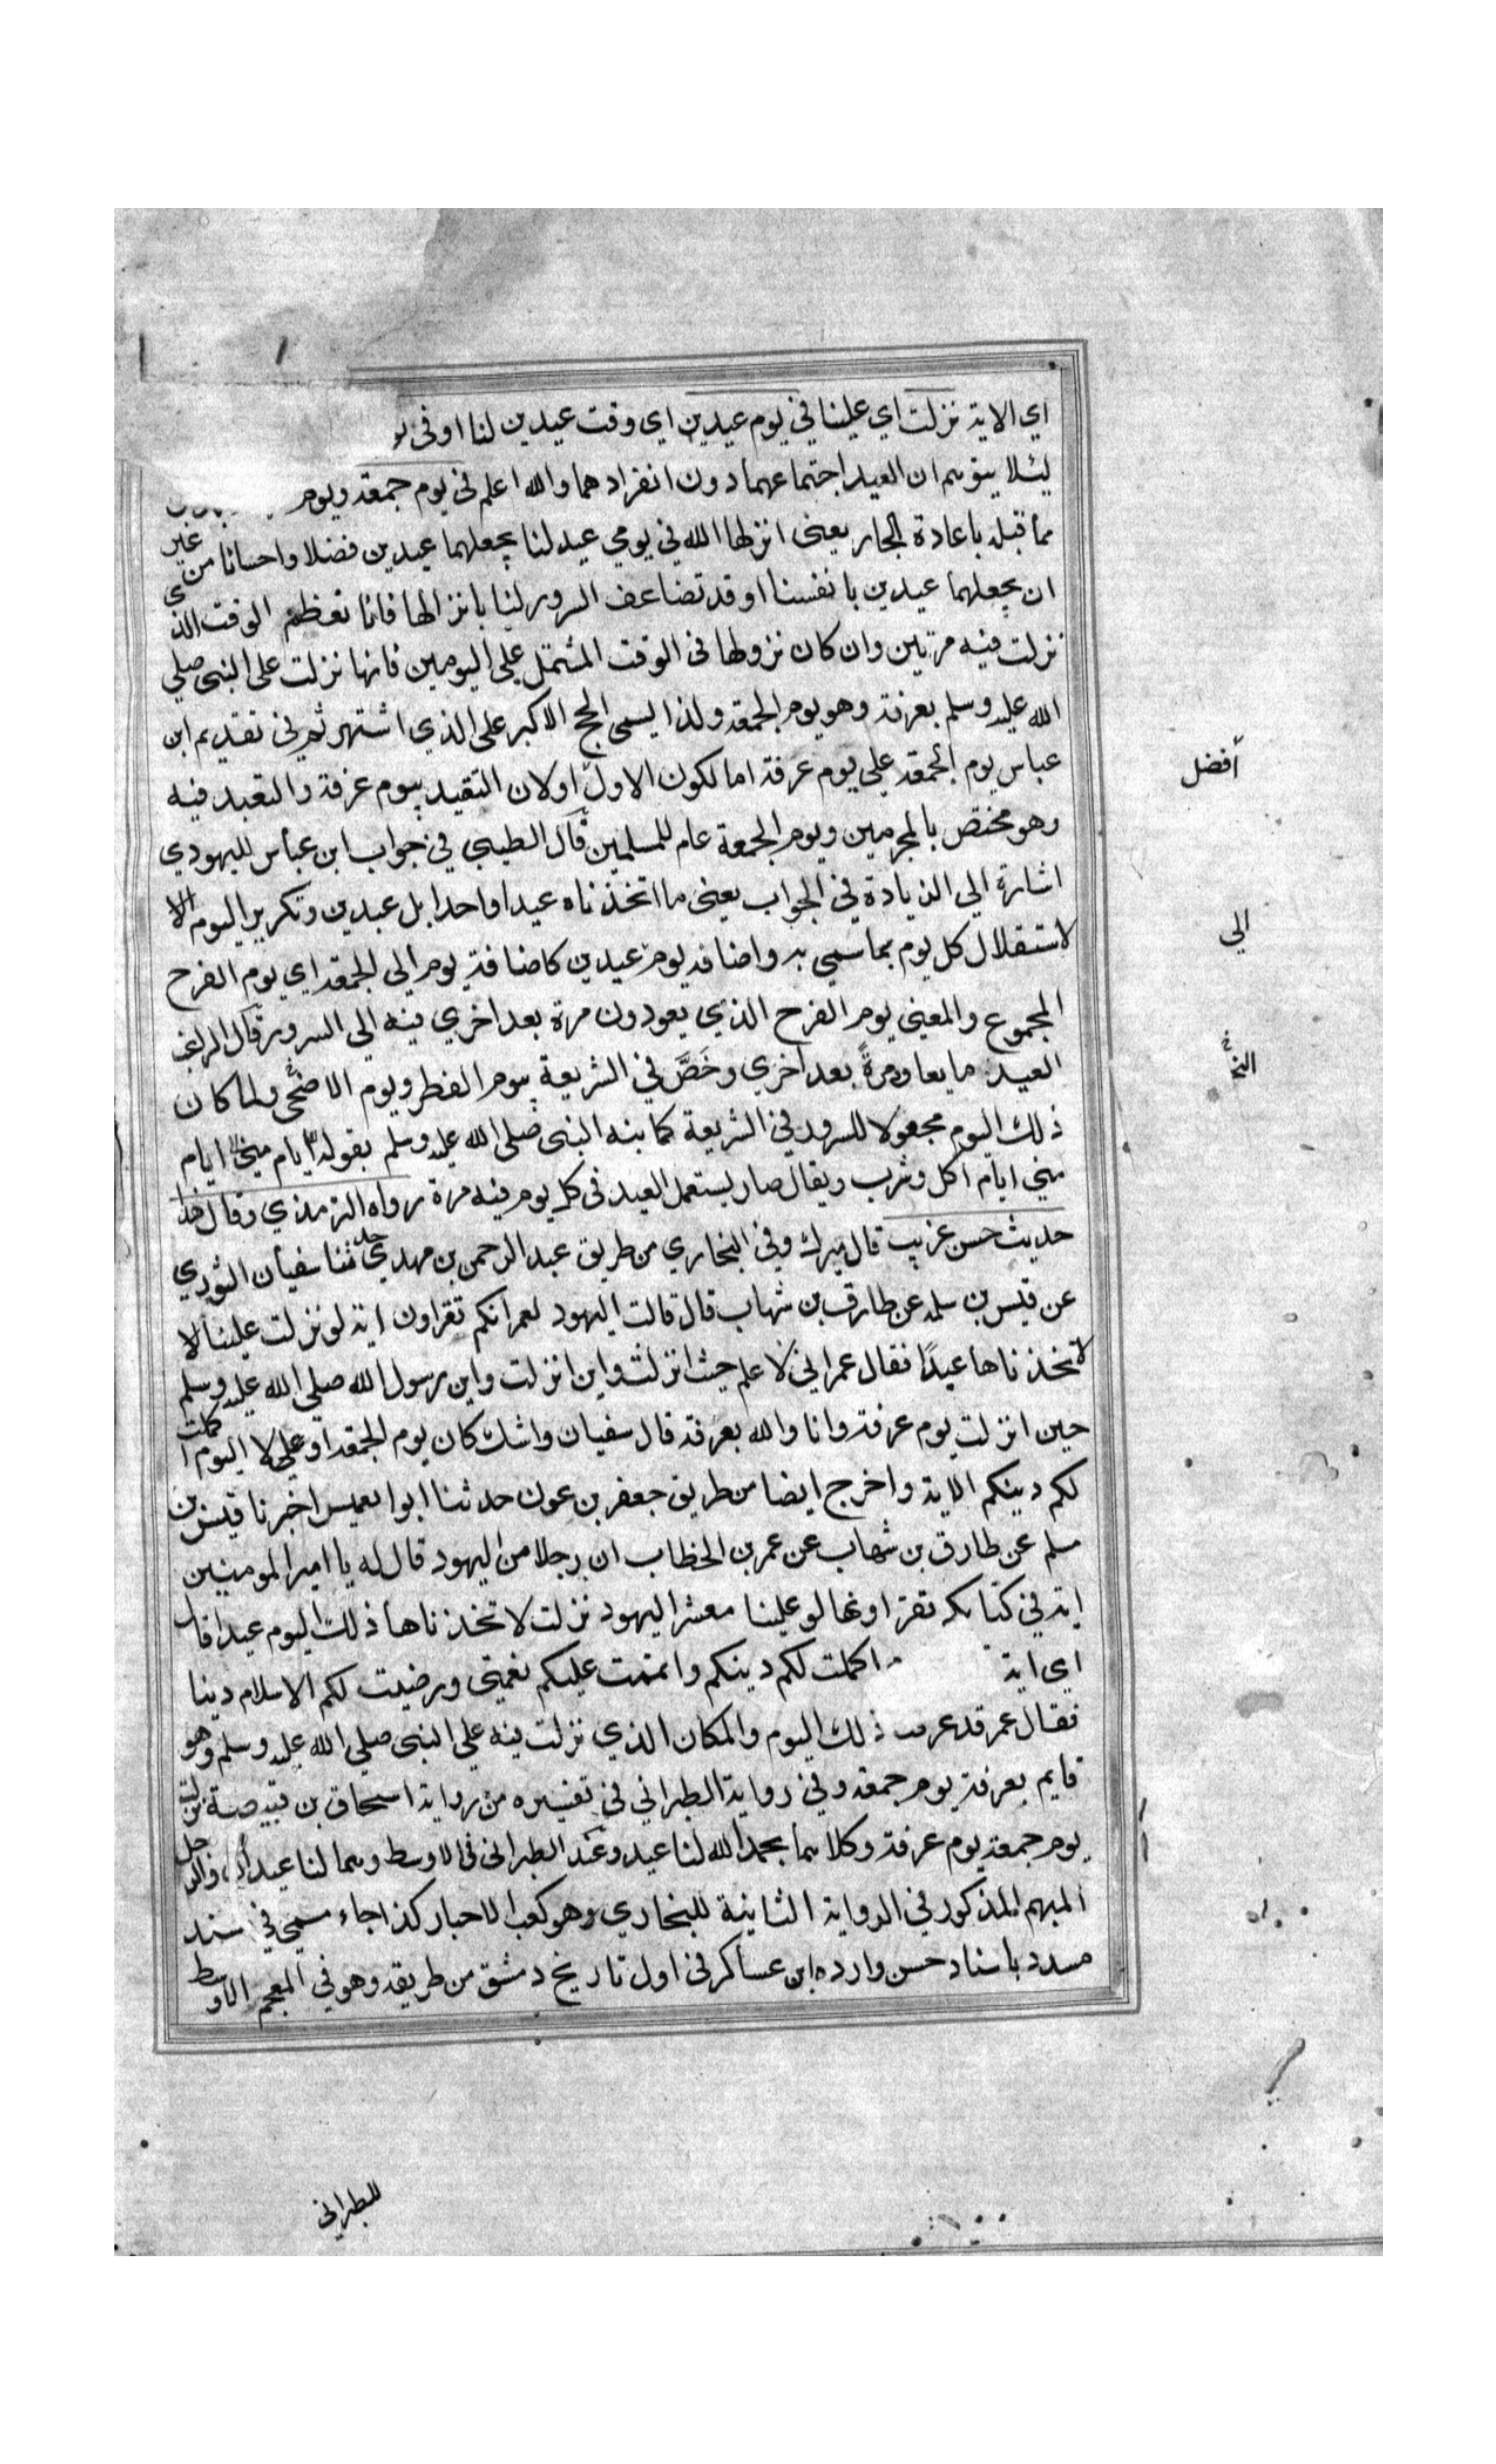 اي الاية نزلت اي علينا في يوم عيدين اي وقت عيدين لنا او في
لئلا يتوهم ان العيد اجتماعهما دون انفرادهما والله اعلم في يوم جمعة ويوم
مما قبله باعادة الجار يعني انزلها الله في يومي عيد لنا بجعلهما عيدين فضلا واحسانا من غير
ان بجعلهما عيدين بانفسنا او قد تضاعف السرور لنا بانزالها فانا نعظم الوقت الذي
نزلت فيه مرتين وان كان نزولها في الوقت المشتمل على اليومين فانها نزلت على النبي صلي
الله عليه وسلم بعرفة وهو يوم الجمعة ولذا يسمى الحج الاكبر على الذي اشتهر ثم في تقديم ابن
عباس يوم الجمعة علي يوم عرفة اما لكون الاول او لان التقيد بيوم عرفة والتعبد فيه
وهو مختص بالمجرمين ويوم الجمعة عام للمسلمين قال الطيبي في جواب ابن عباس لليهودي
اشارة الي الزيادة في الجواب يعني ما اتخذناه عيدا واحدا بل عيدين وتكرير اليوم الا
لاستقلال كل يوم بما سمي به واضافة يوم عيدين كاضافة يوم الى الجمعة اي يوم الفرح
المجموع والمعني يوم الفرح الذي يعودون مرة بعد اخري فيه الي السرور قال الراغب
العيد ما يعاود مرةً بعد اخري وخَصَّ في الشريعة بيوم الفطر ويوم الاضحى ولما كان
ذلك اليوم مجعولا للسرور في الشريعة كما نبه النبي صلى الله عليه وسلم بقوله ايام مني ايام
مني ايام اكل وشرب ويقال صار يستعمل العيد في كل يوم فيه مرة رواه الترمذي وقال هذا
حديث حسن غريب قال ميرك وفي البخاري من طريق عبد الرحمن بن مهدي حدثنا سفيان الثوري
عن قيس بن سلمه عن طارق بن شهاب قال قالت اليهود لعمر انكم تقراون اية لو نزلت علينا لا
لاتخذناها عيدًا فقال عمر اني لاعلم حيث انزلت واين انزلت واين رسول الله صلي الله عليه وسلم
حين انزلت يوم عرفة وانا والله بعرفة قال سفيان واشك كان يوم الجمعة او علي لا اليوم اكملت
لكم دينكم الاية واخرج ايضا من طريق جعفر بن عون حدثنا ابو العميس اخبرنا قيس بن
مسلم عن طارق بن شهاب عن عمر بن الخطاب ان رجلا من اليهود قال له يا امير المومنين
اية في كتابكم تقراونها لو علينا معشر اليهود نزلت لاتخذناها ذلك اليوم عيدا قال
اي اية اكملت لكم دينكم واتممت عليكم نعمتي ورضيت لكم الاسلام دينا
فقال عمر قد عرفت ذلك اليوم والمكان الذي نزلت فيه علي النبي صلي الله عليه وسلم وهو
قايم بعرفة يوم جمعة وفي رواية الطبراني في تفسيره من رواية اسحاق بن قبيصة نزلت
يوم جمعة يوم عرفة وكلاهما بحمد الله لنا عيد وعند الطبراني في الاوسط وهما لنا عيدان والرجل
المبهم المذكور في الرواية الثانية للبخاري وهو كعب الاحبار كذا جاء مسمي في مسند
مسدد باسناد حسن وارده ابن عساكر في اول تاريخ دمشق من طريقه وهو في المعجم الاوسط
للطبراني
أفضل
الي